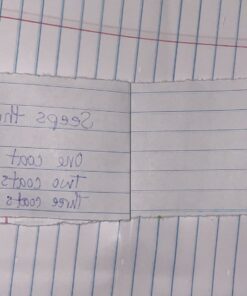 Seeps thr
One coat
Two coats
Three coats